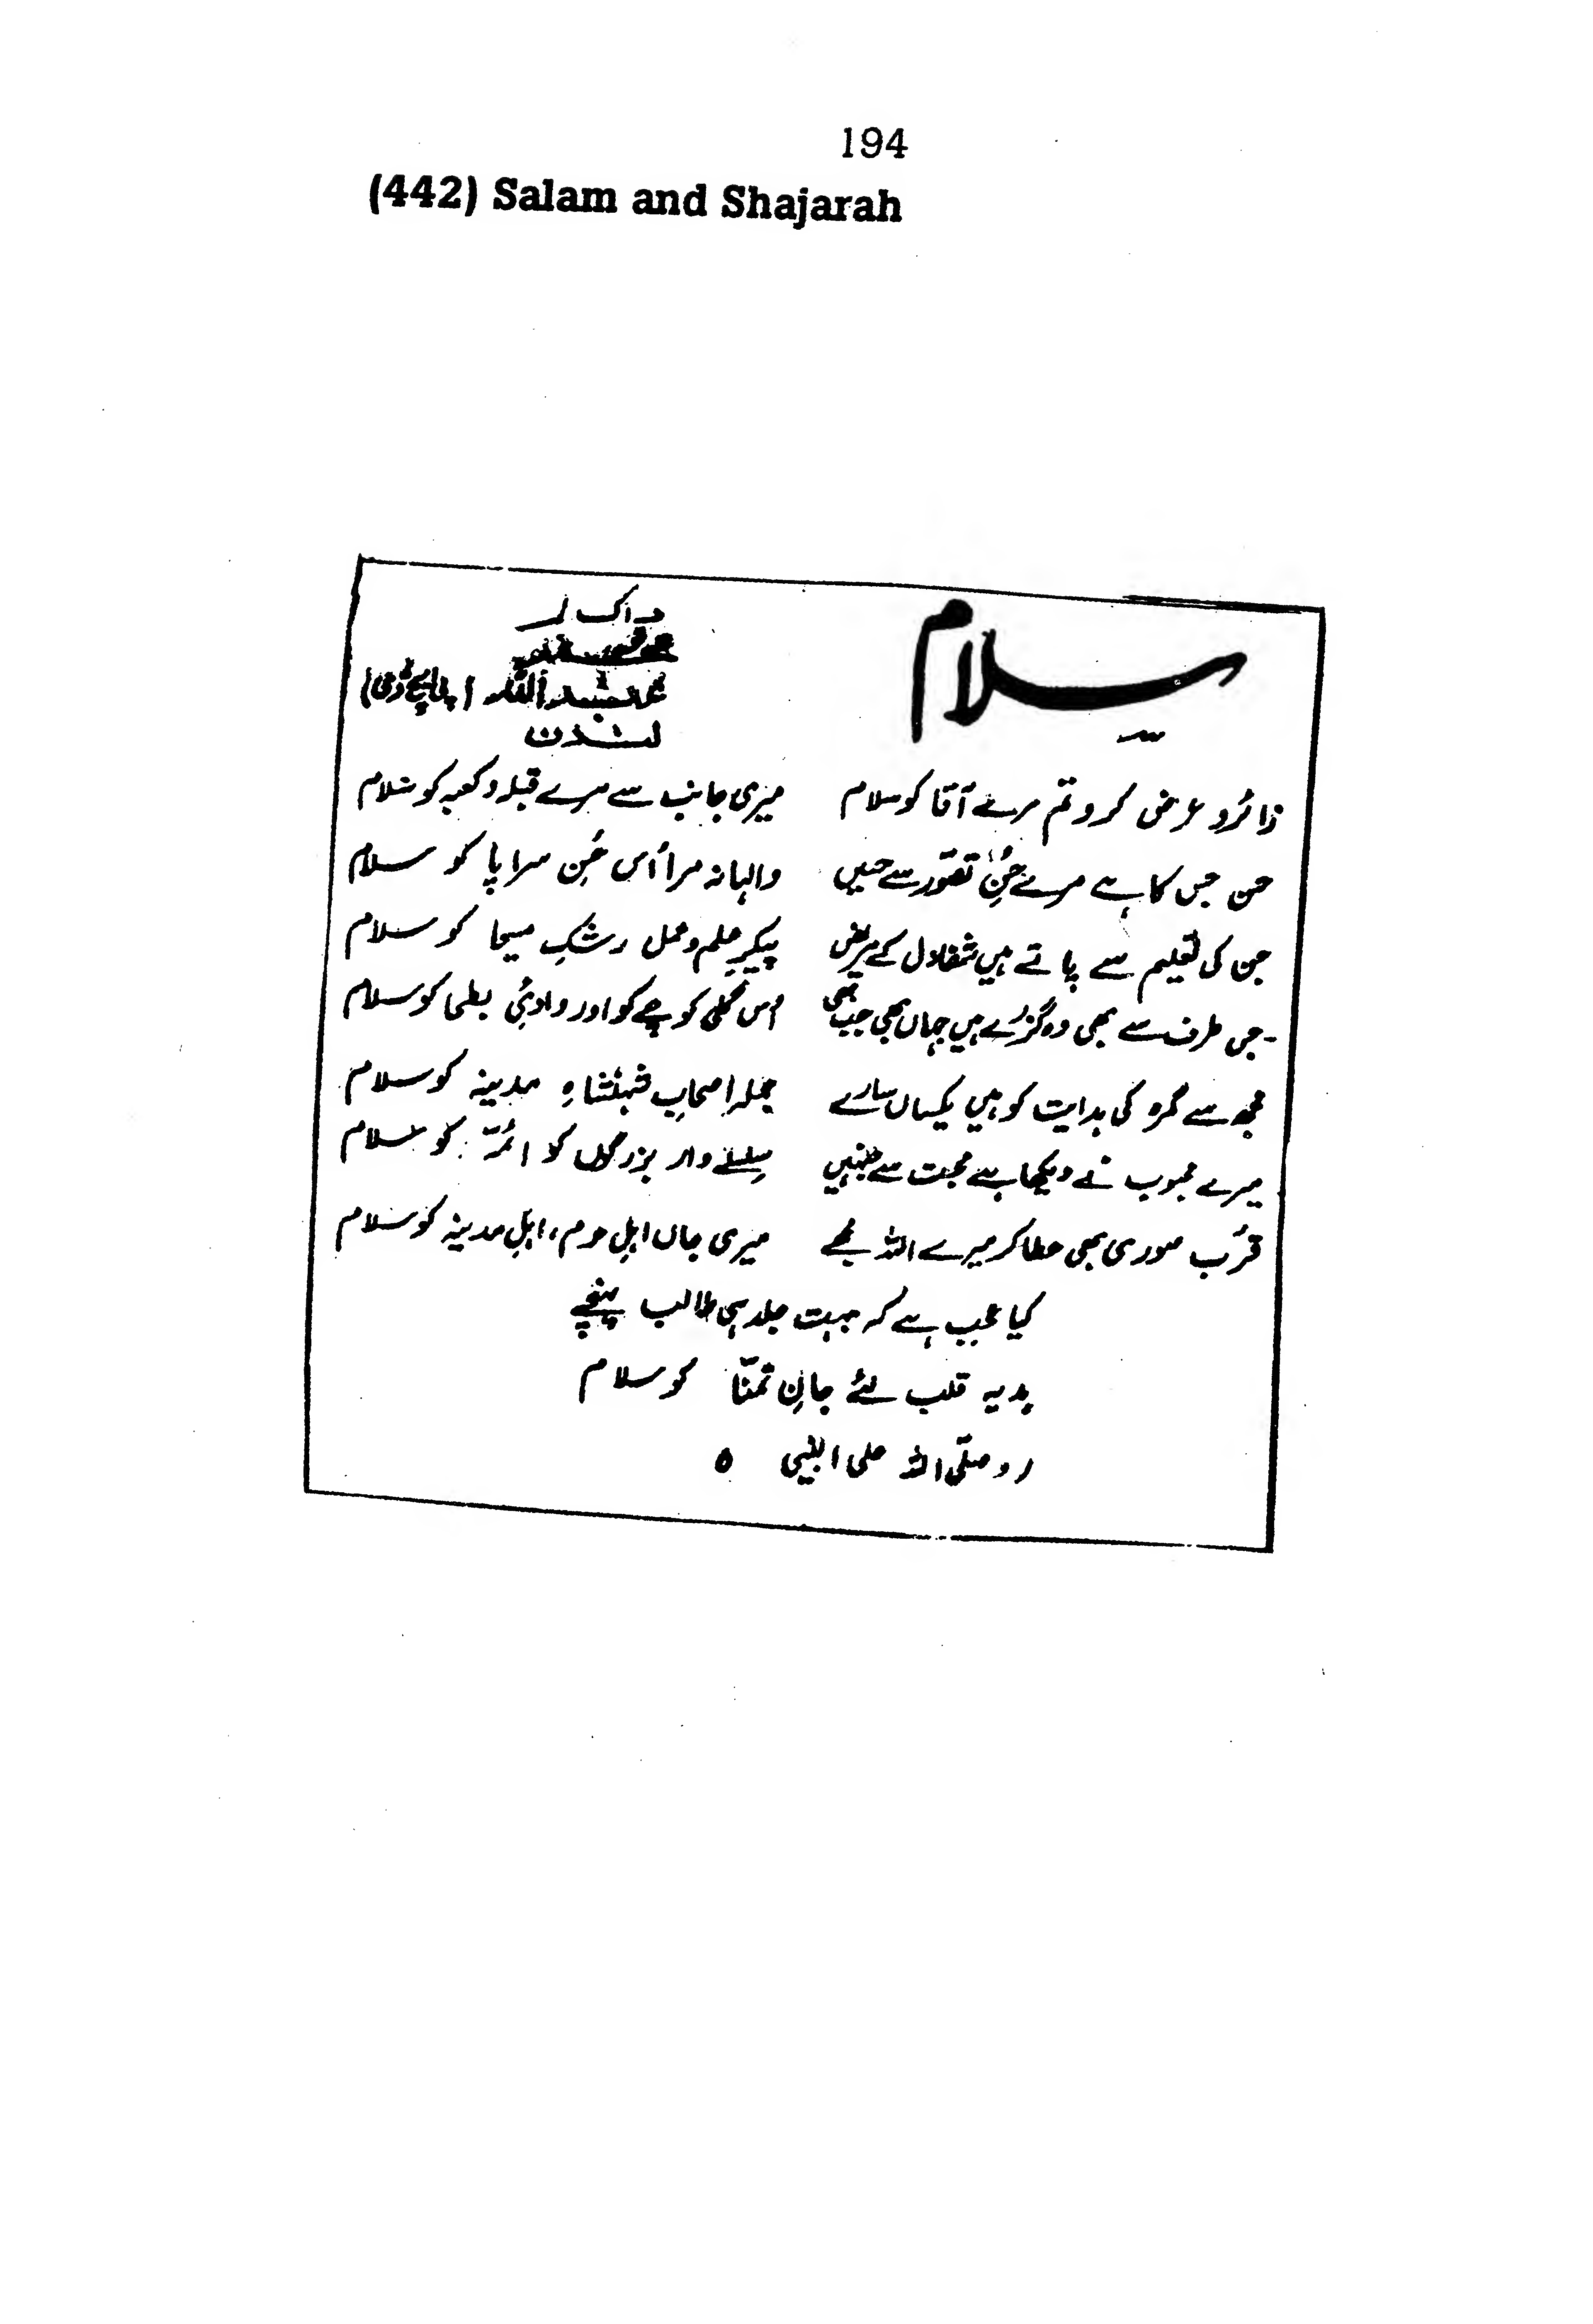 194
(442) Salam and Shajarah
سلام
ڈاکٹر
عبداللہ (پی ایچ ڈی)
لندن
زائرو عرض کرو تم مرے آقا کو سلام میری جانب سے مرے قبلہ و کعبہ کو سلام
حسن جس کا ہے مرے حسنِ تصوّر سے حسیں والہانہ مرا اُس حُسنِ سراپا کو سلام
جن کی تعلیم سے پاتے ہیں شفا دل کے مریض پیکرِ علم و عمل رشکِ مسیحا کو سلام
جس طرف سے بھی وہ گزرے ہیں جہاں بھی جب بھی اُس گلی کوچے کو اور وادئِ بطحا کو سلام
مجھ سے گمرہ کی ہدایت کو ہیں یکساں سارے جملہ اصحابِ شہنشاہِ مدینہ کو سلام
میرے محبوب نے دیکھا ہے محبت سے جنہیں سِلسلے وار بزرگوں کو ائمّہ کو سلام
قُرب صوری بھی عطا کر میرے اللہ مجھے میری جاں اہلِ حرم، اہلِ مدینہ کو سلام
کیا عجب ہے کہ بہت جلد ہی طالب پہنچے
ہدیہ قلب لئے جانِ تمنّا کو سلام
و صلّی اللہ علی النبی ٥